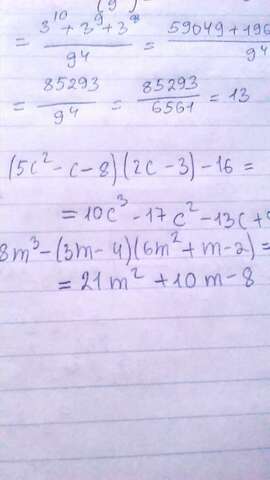 (9
= (3¹⁰ + 3⁹ + 3⁸)/9⁴ = (59049 + 196)/9⁴
= 85293/9⁴ = 85293/6561 = 13
(5c² - c - 8)(2c - 3) - 16 =
= 10c³ - 17c² - 13c +
8m³ - (3m - 4)(6m² + m - 2) =
= 21m² + 10m - 8